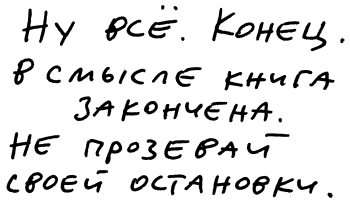 Ну всё. Конец.
В смысле книга
закончена.
Не прозевай
своей остановки.